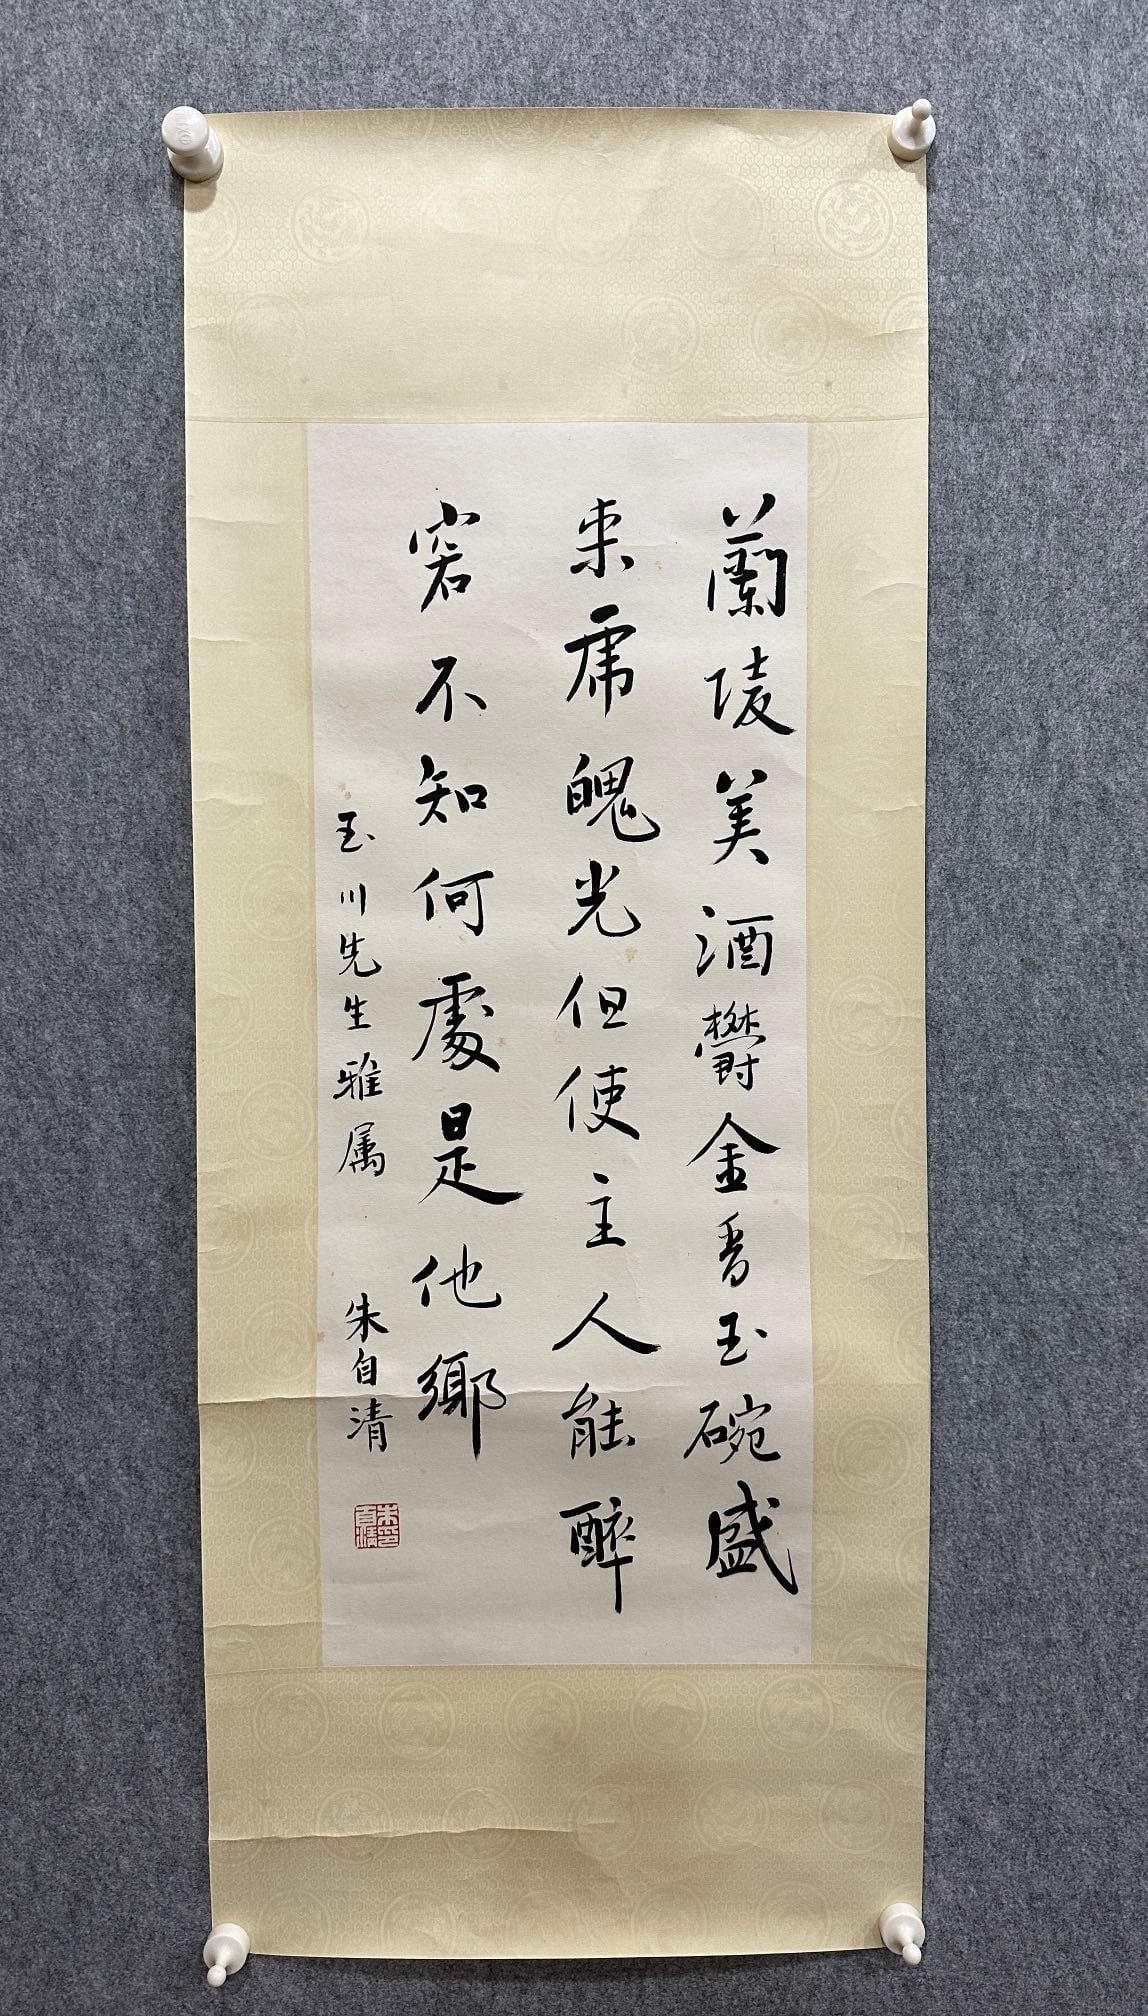 蘭陵美酒欝金香玉碗盛
来虎魄光但使主人能醉
客不知何處是他鄉
玉川先生雅属
朱自清
朱自清印